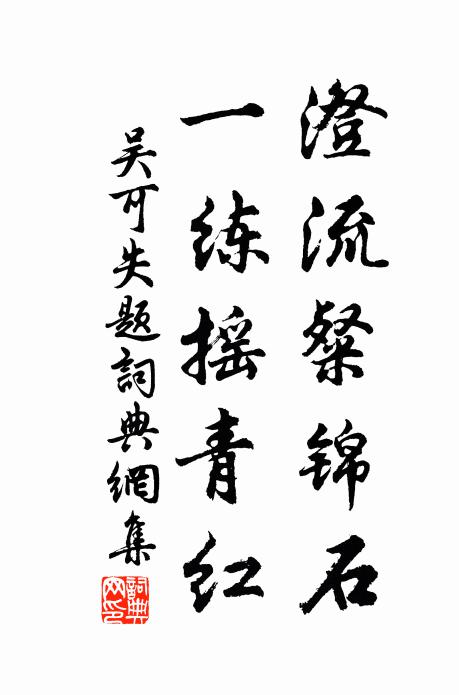 澄流粲锦石
一练摇青红
吴可失题詞典網集
詞典网印